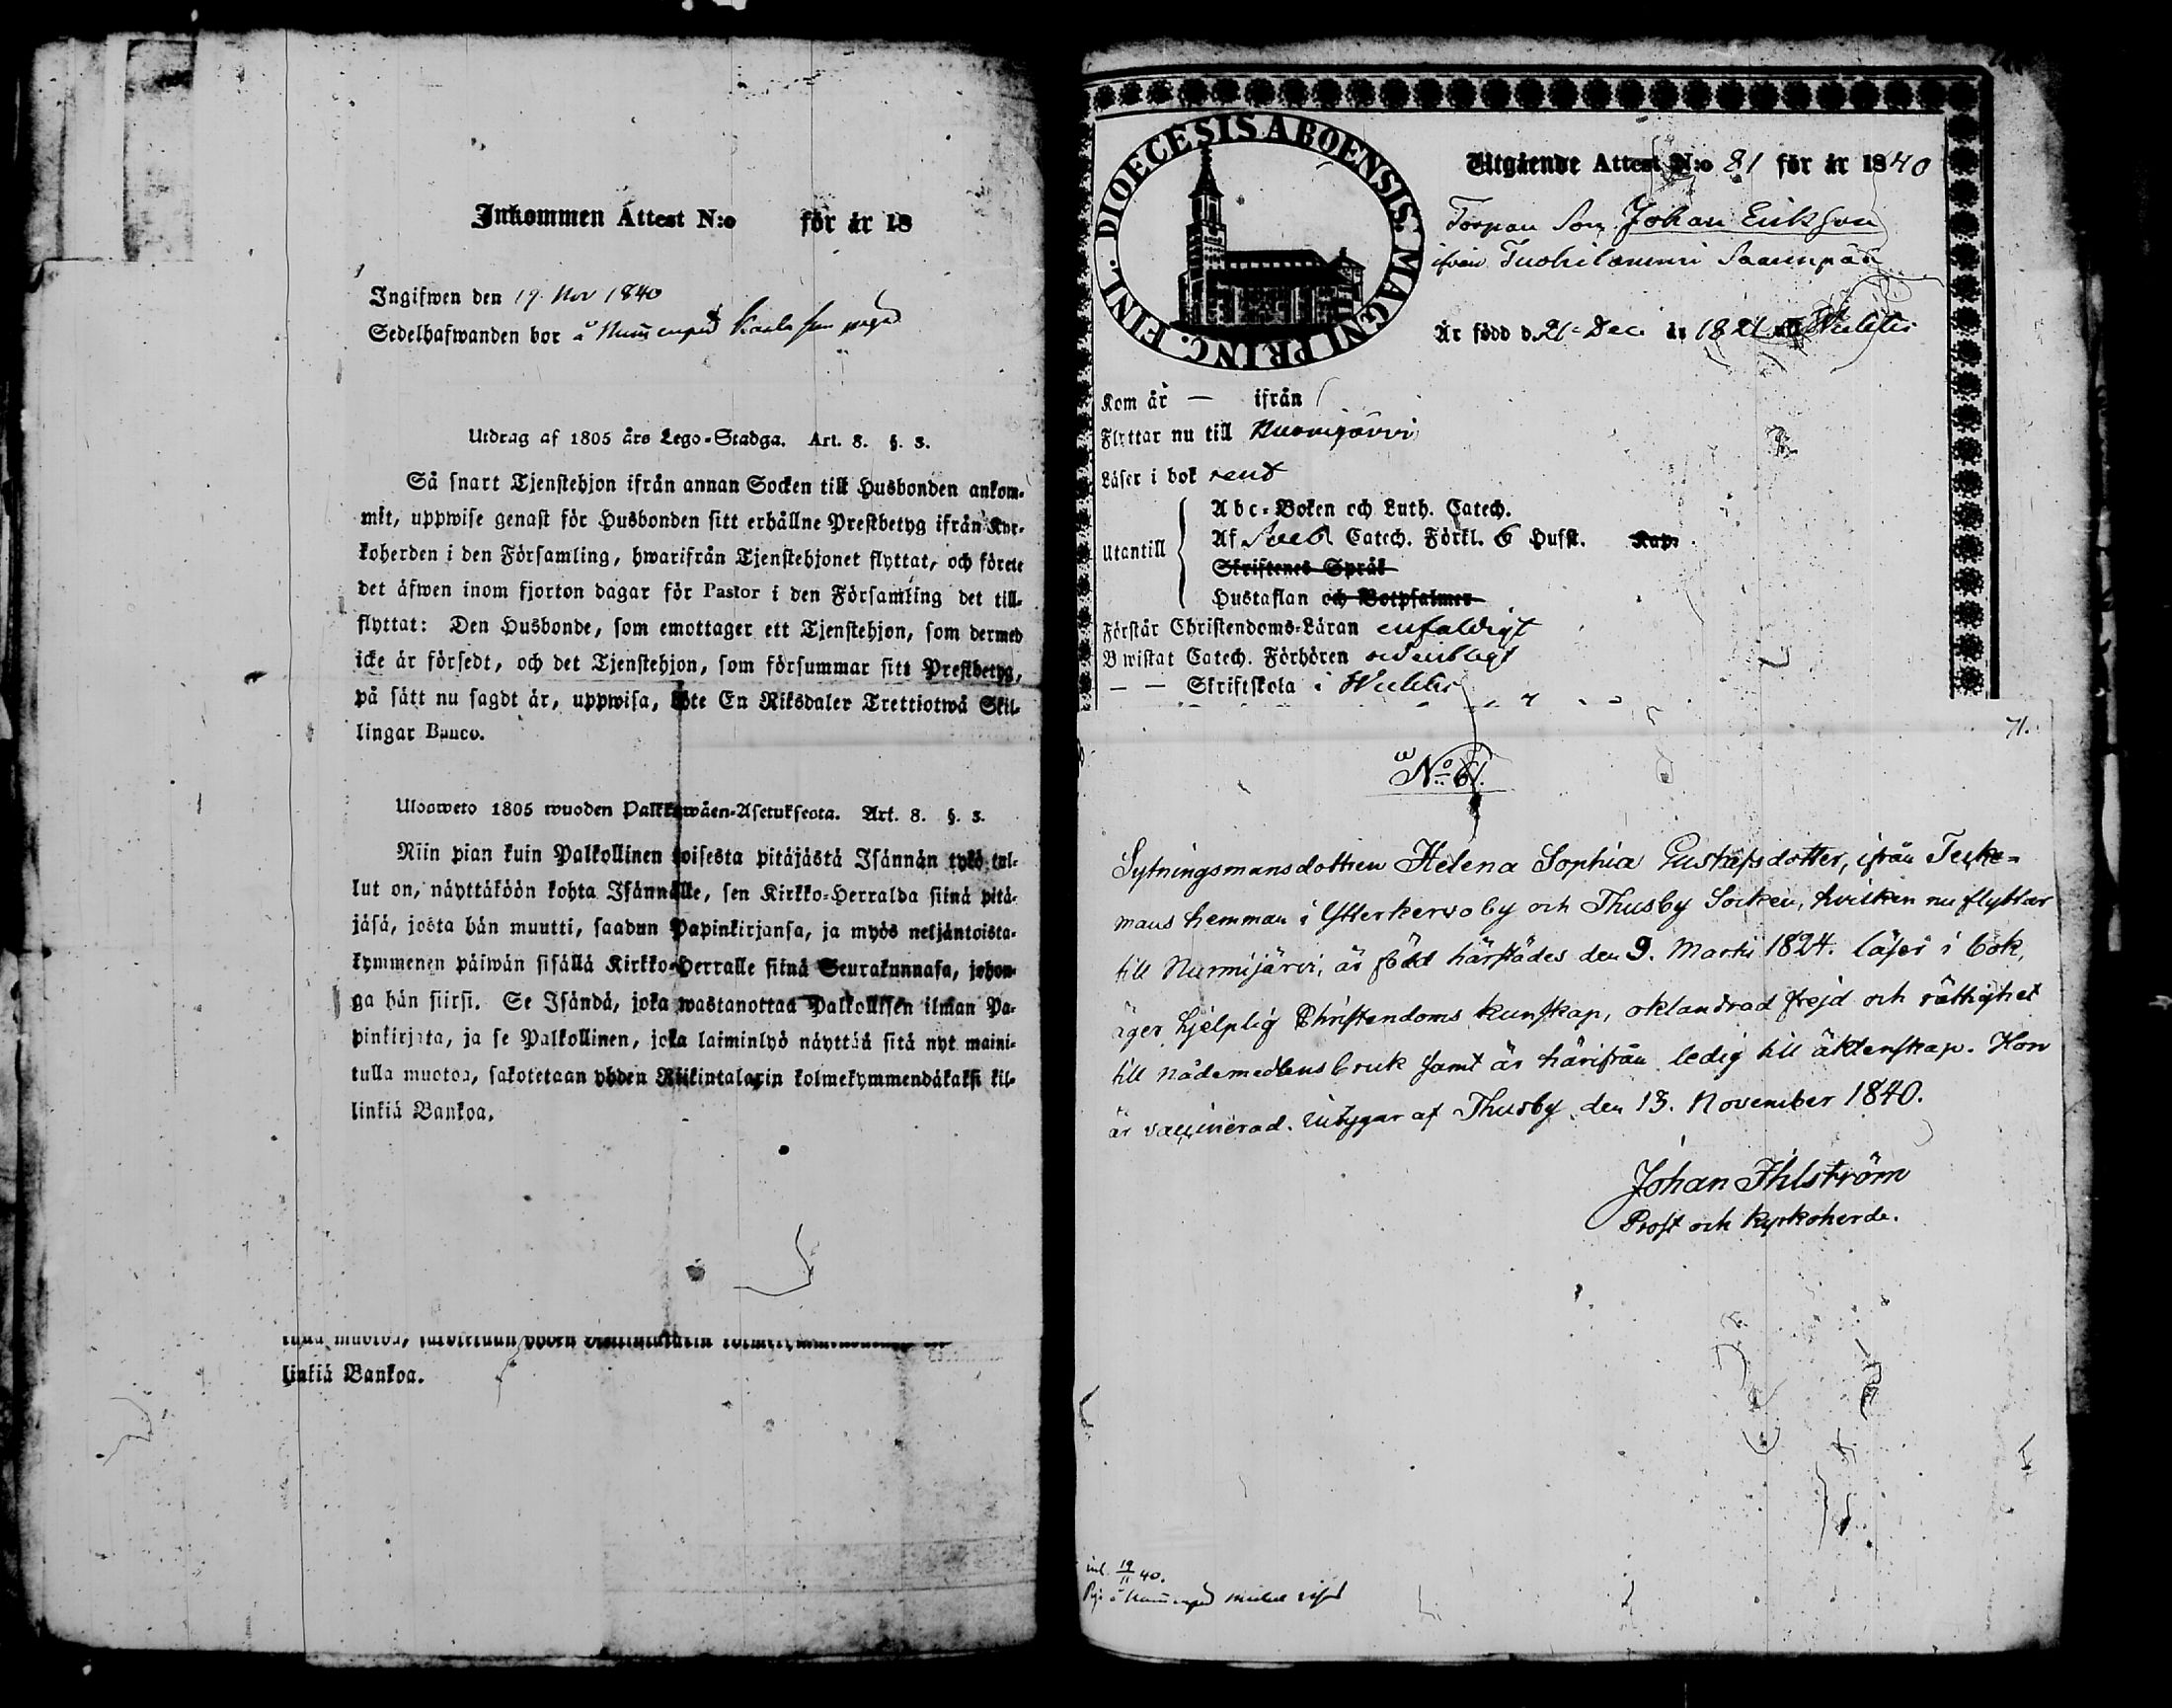 Inkommen Attest N:o för år 18
Ingifwen den 19 Nov 1840
Sedelhafwanden bor å
Utdrag af 1805 års Lego-Stadga. Art. 8. §. 3.
Så snart Tjenstehjon ifrån annan Socken till Husbonden ankom-
mit, uppwise genast för Husbonden sitt erhållne Prestbetyg ifrån Kyr-
koherden i den Församling, hwarifrån Tjenstehjonet flyttat, och förete
det äfwen inom fjorton dagar för Pastor i den Församling det till-
flyttat: Den Husbonde, som emottager ett Tjenstehjon, som dermed
icke är försedt, och det Tjenstehjon, som försummar sitt Prestbetyg,
på sätt nu sagdt är, uppwisa, böte En Riksdaler Trettiotwå Skil-
lingar Banco.
Ulosweto 1805 wuoden Palkkawäen-Asetuksesta. Art. 8. §. 3.
Niin pian kuin Palkollinen toisesta pitäjästä Isännän tykö tul-
lut on, näyttäköön kohta Isännälle, sen Kirkko-Herralda siinä pitä-
jäsä, josta hän muutti, saadun Papinkirjansa, ja myös neljäntoista-
kymmenen päiwän sisällä Kirkko-Herralle siinä Seurakunnasa, johon-
ga hän siirsi. Se Isändä, joka wastanottaa Palkollisen ilman Pa-
pinkirjata, ja se Palkollinen, joka laiminlyö näyttää sitä nyt maini-
tulla muotoa, sakotetaan yhden Riikintalarin kolmekymmendäkaksi kil-
linkiä Bankoa.
linkiä Bankoa.
DIOECESIS ABOENSIS. MAGNI PRINC. FINL.
Utgående Attest N:o 81 för år 1840
Torpare Son Johan Erikson
ifrån
Är född d. 21 Dec. år 1821 i Wichtis
Kom år — ifrån
Flyttar nu till Nurmijärvi
Läser i bok rent
Utantill
Abc-Boken och Luth. Catech.
Af Sveb. Catech. Förkl. 6 Hufst. Kap.
Skriftenes Språk
Hustaflan och Botpsalmer
Förstår Christendoms-Läran enfaldigt
Bwistat Catech. Förhören ordentligt
— — Skriftskola i Wichtis
71.
No 61.
Sytningsmansdottren Helena Sophia Gustafsdotter, ifrån Teske-
mans hemman i Ytterkervo by och Thusby Socken, hvilken nu flyttar
till Nurmijärvi, är född härstädes den 9. Martii 1824. läser i bok,
äger hjelplig Christendoms kunskap, oklandrad frejd och rättighet
till nådemedlens bruk samt är härifrån ledig till äktenskap. Hon
är vaccinerad. Intygar af Thusby den 13. November 1840.
Johan Ihlström
Prost och Kyrkoherde.
inl. 19/11 40.